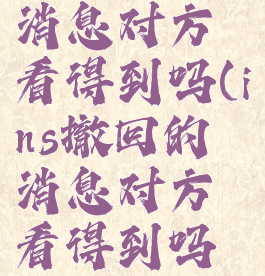 消息对方
看得到吗(i
ns撤回的
消息对方
看得到吗